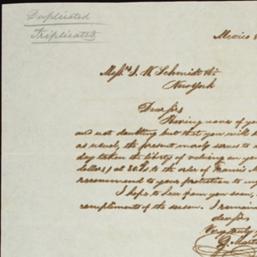 Duplicated
Triplicated
Mexico
Messrs J. W. Schmidt &
New York
Dear Sirs
Having none of you
and not doubting but that you will
as usual, the present merely serves to
day taken the liberty of valuing on you
dollars) at 30 the order of Francis
recommend to your protection to
I hope to hear from you soon,
compliments of the season. I remain
dear sirs